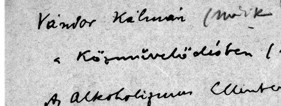 Vándor Kálmán (
a Közművelődésben (
Az Alkoholizmus Ellen